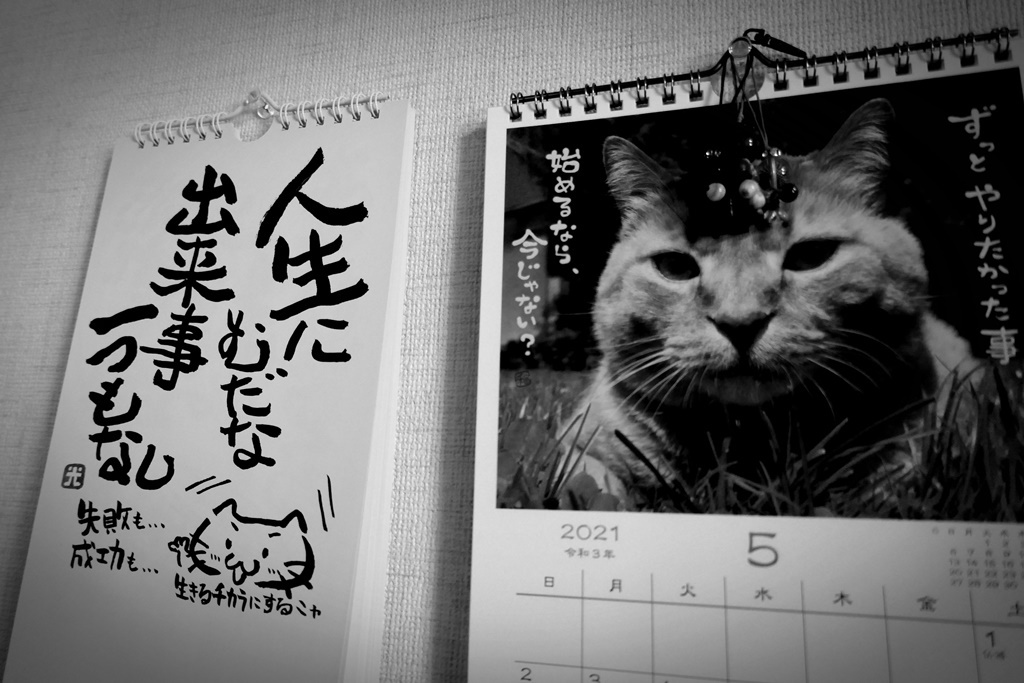 人生に
むだな
出来事
一つもなし
失敗も...
成功も...
生きるチカラにするニャ
ずっとやりたかった事
始めるなら、
今じゃない?
2021
令和3年
5
日 月 火 水 木 金 土
1
2 3